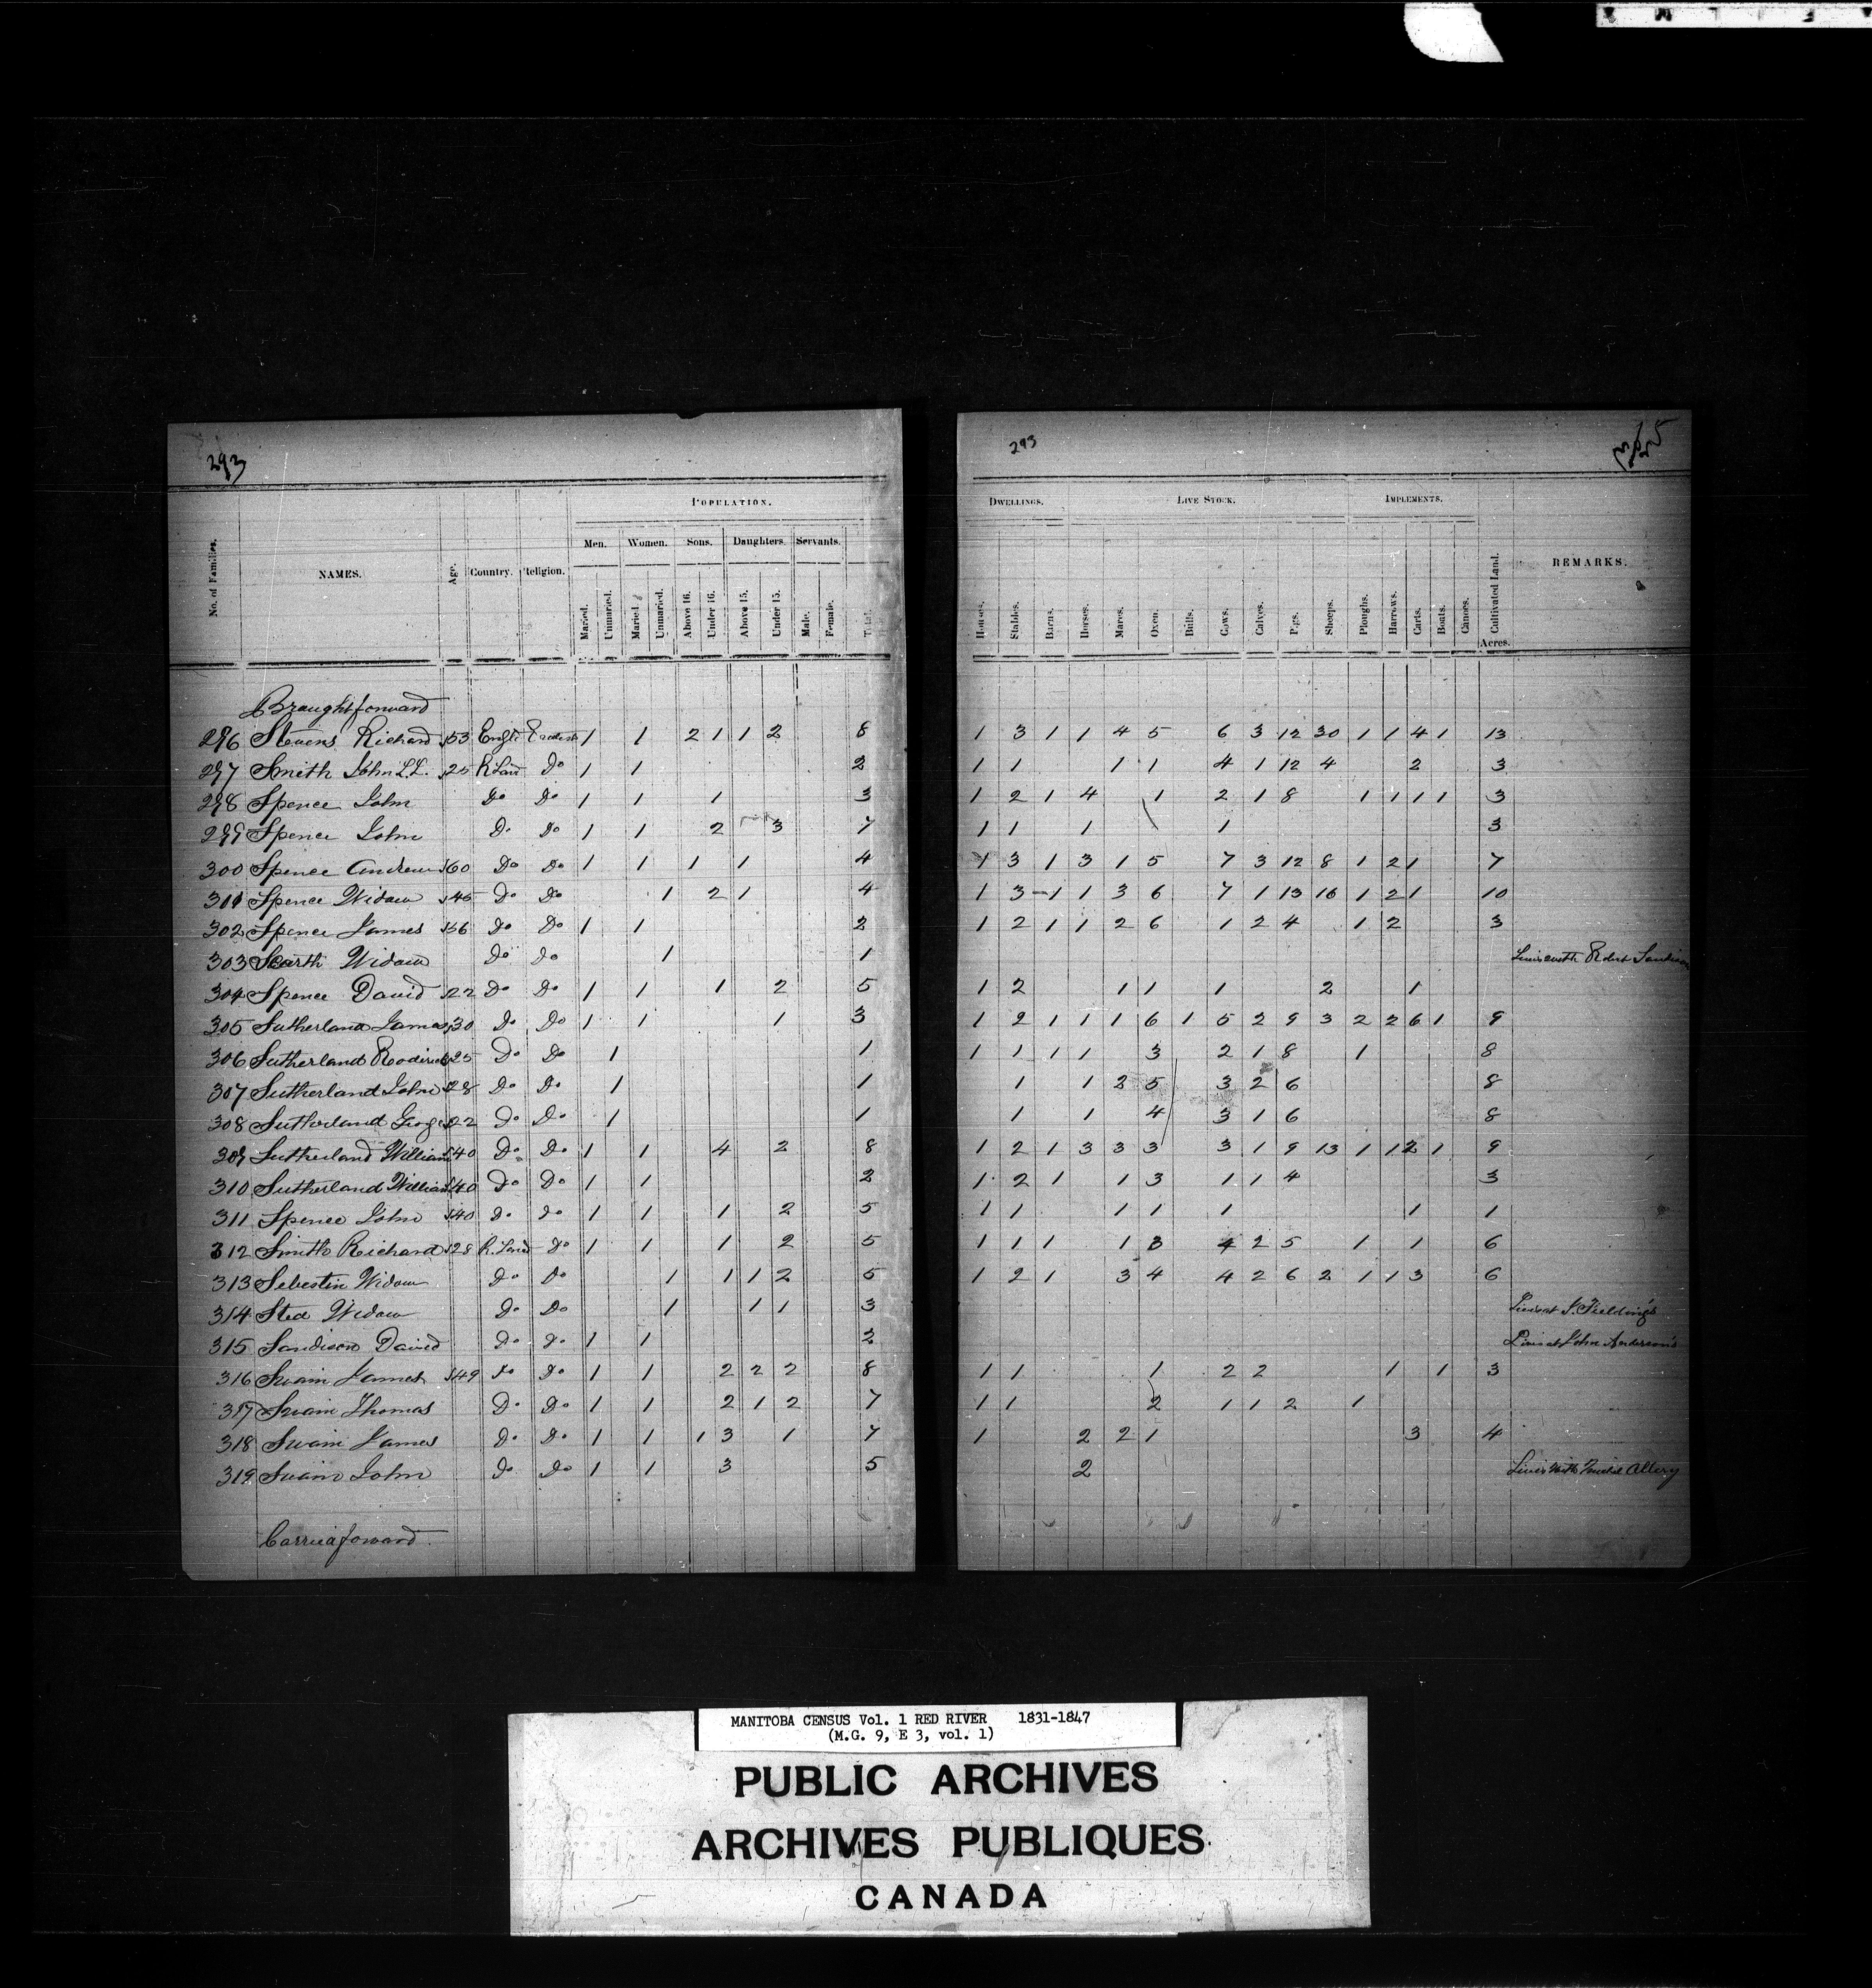 293
POPULATION.
No. of Families. NAMES. Age. Country. Religion. Men. Women. Sons. Daughters. Servants.
Maried. Unmaried. Maried. Unmaried. Above 16. Under 16. Above 15. Under 15. Male. Female. Total.
Braught forward
296 Stevens Richard 53 Engld 1 1 2 1 1 2 8
297 Smith John L.L. 25 R. Land Do 1 1 2
298 Spence John Do Do 1 1 1 3
299 Spence John Do Do 1 1 2 3 7
300 Spence Andrew 60 Do Do 1 1 1 1 4
301 Spence Widow 45 Do Do 1 2 1 4
302 Spence James 56 Do Do 1 1 2
303 Scarth Widow Do Do 1 1
304 Spence David 22 Do Do 1 1 1 2 5
305 Sutherland James 30 Do Do 1 1 1 3
306 Sutherland Roderick 25 Do Do 1 1
307 Sutherland John 28 Do Do 1 1
308 Sutherland George 22 Do Do 1 1
309 Sutherland William 40 Do Do 1 1 4 2 8
310 Sutherland William 40 Do Do 1 1 2
311 Spence John 40 Do Do 1 1 1 2 5
312 Smith Richard 28 R. Land Do 1 1 1 2 5
313 Sebestin Widow Do Do 1 1 1 2 5
314 Sted Widow Do Do 1 1 1 3
315 Sandison David Do Do 1 1 2
316 Swain James 49 Do Do 1 1 2 2 2 8
317 Swain Thomas Do Do 1 1 2 1 2 7
318 Swain James Do Do 1 1 1 3 1 7
319 Swain John Do Do 1 1 3 5
Carried forward
293
DWELLINGS. LIVE STOCK. IMPLEMENTS.
Houses. Stables. Barns. Horses. Mares. Oxen. Bulls. Cows. Calves. Pigs. Sheeps. Ploughs. Harrows. Carts. Boats. Canoes. Cultivated Land. Acres. REMARKS.
1 3 1 1 4 5 6 3 12 30 1 1 4 1 13
1 1 1 1 4 1 12 4 2 3
1 2 1 4 1 2 1 8 1 1 1 1 3
1 1 1 1 3
1 3 1 3 1 5 7 3 12 8 1 2 1 7
1 3 1 1 3 6 7 1 13 16 1 2 1 10
1 2 1 1 2 6 1 2 4 1 2 3
Lives with Robt Sandison
1 2 1 1 1 2 1
1 2 1 1 1 6 1 5 2 9 3 2 2 6 1 9
1 1 1 1 3 2 1 8 1 8
1 1 2 5 3 2 6 8
1 1 4 3 1 6 8
1 2 1 3 3 3 3 1 9 13 1 1 2 1 9
1 2 1 1 3 1 1 4 3
1 1 1 1 1 1 1
1 1 1 1 3 4 2 5 1 1 6
1 2 1 3 4 4 2 6 2 1 1 3 6
Lives at J. Fielding's
Lives at John Anderson's
1 1 1 2 2 1 1 3
1 1 2 1 1 2 1
1 2 2 1 3 4
2 Lives with
MANITOBA CENSUS Vol. 1 RED RIVER 1831-1847
(M.G. 9, E 3, vol. 1)
PUBLIC ARCHIVES
ARCHIVES PUBLIQUES
CANADA